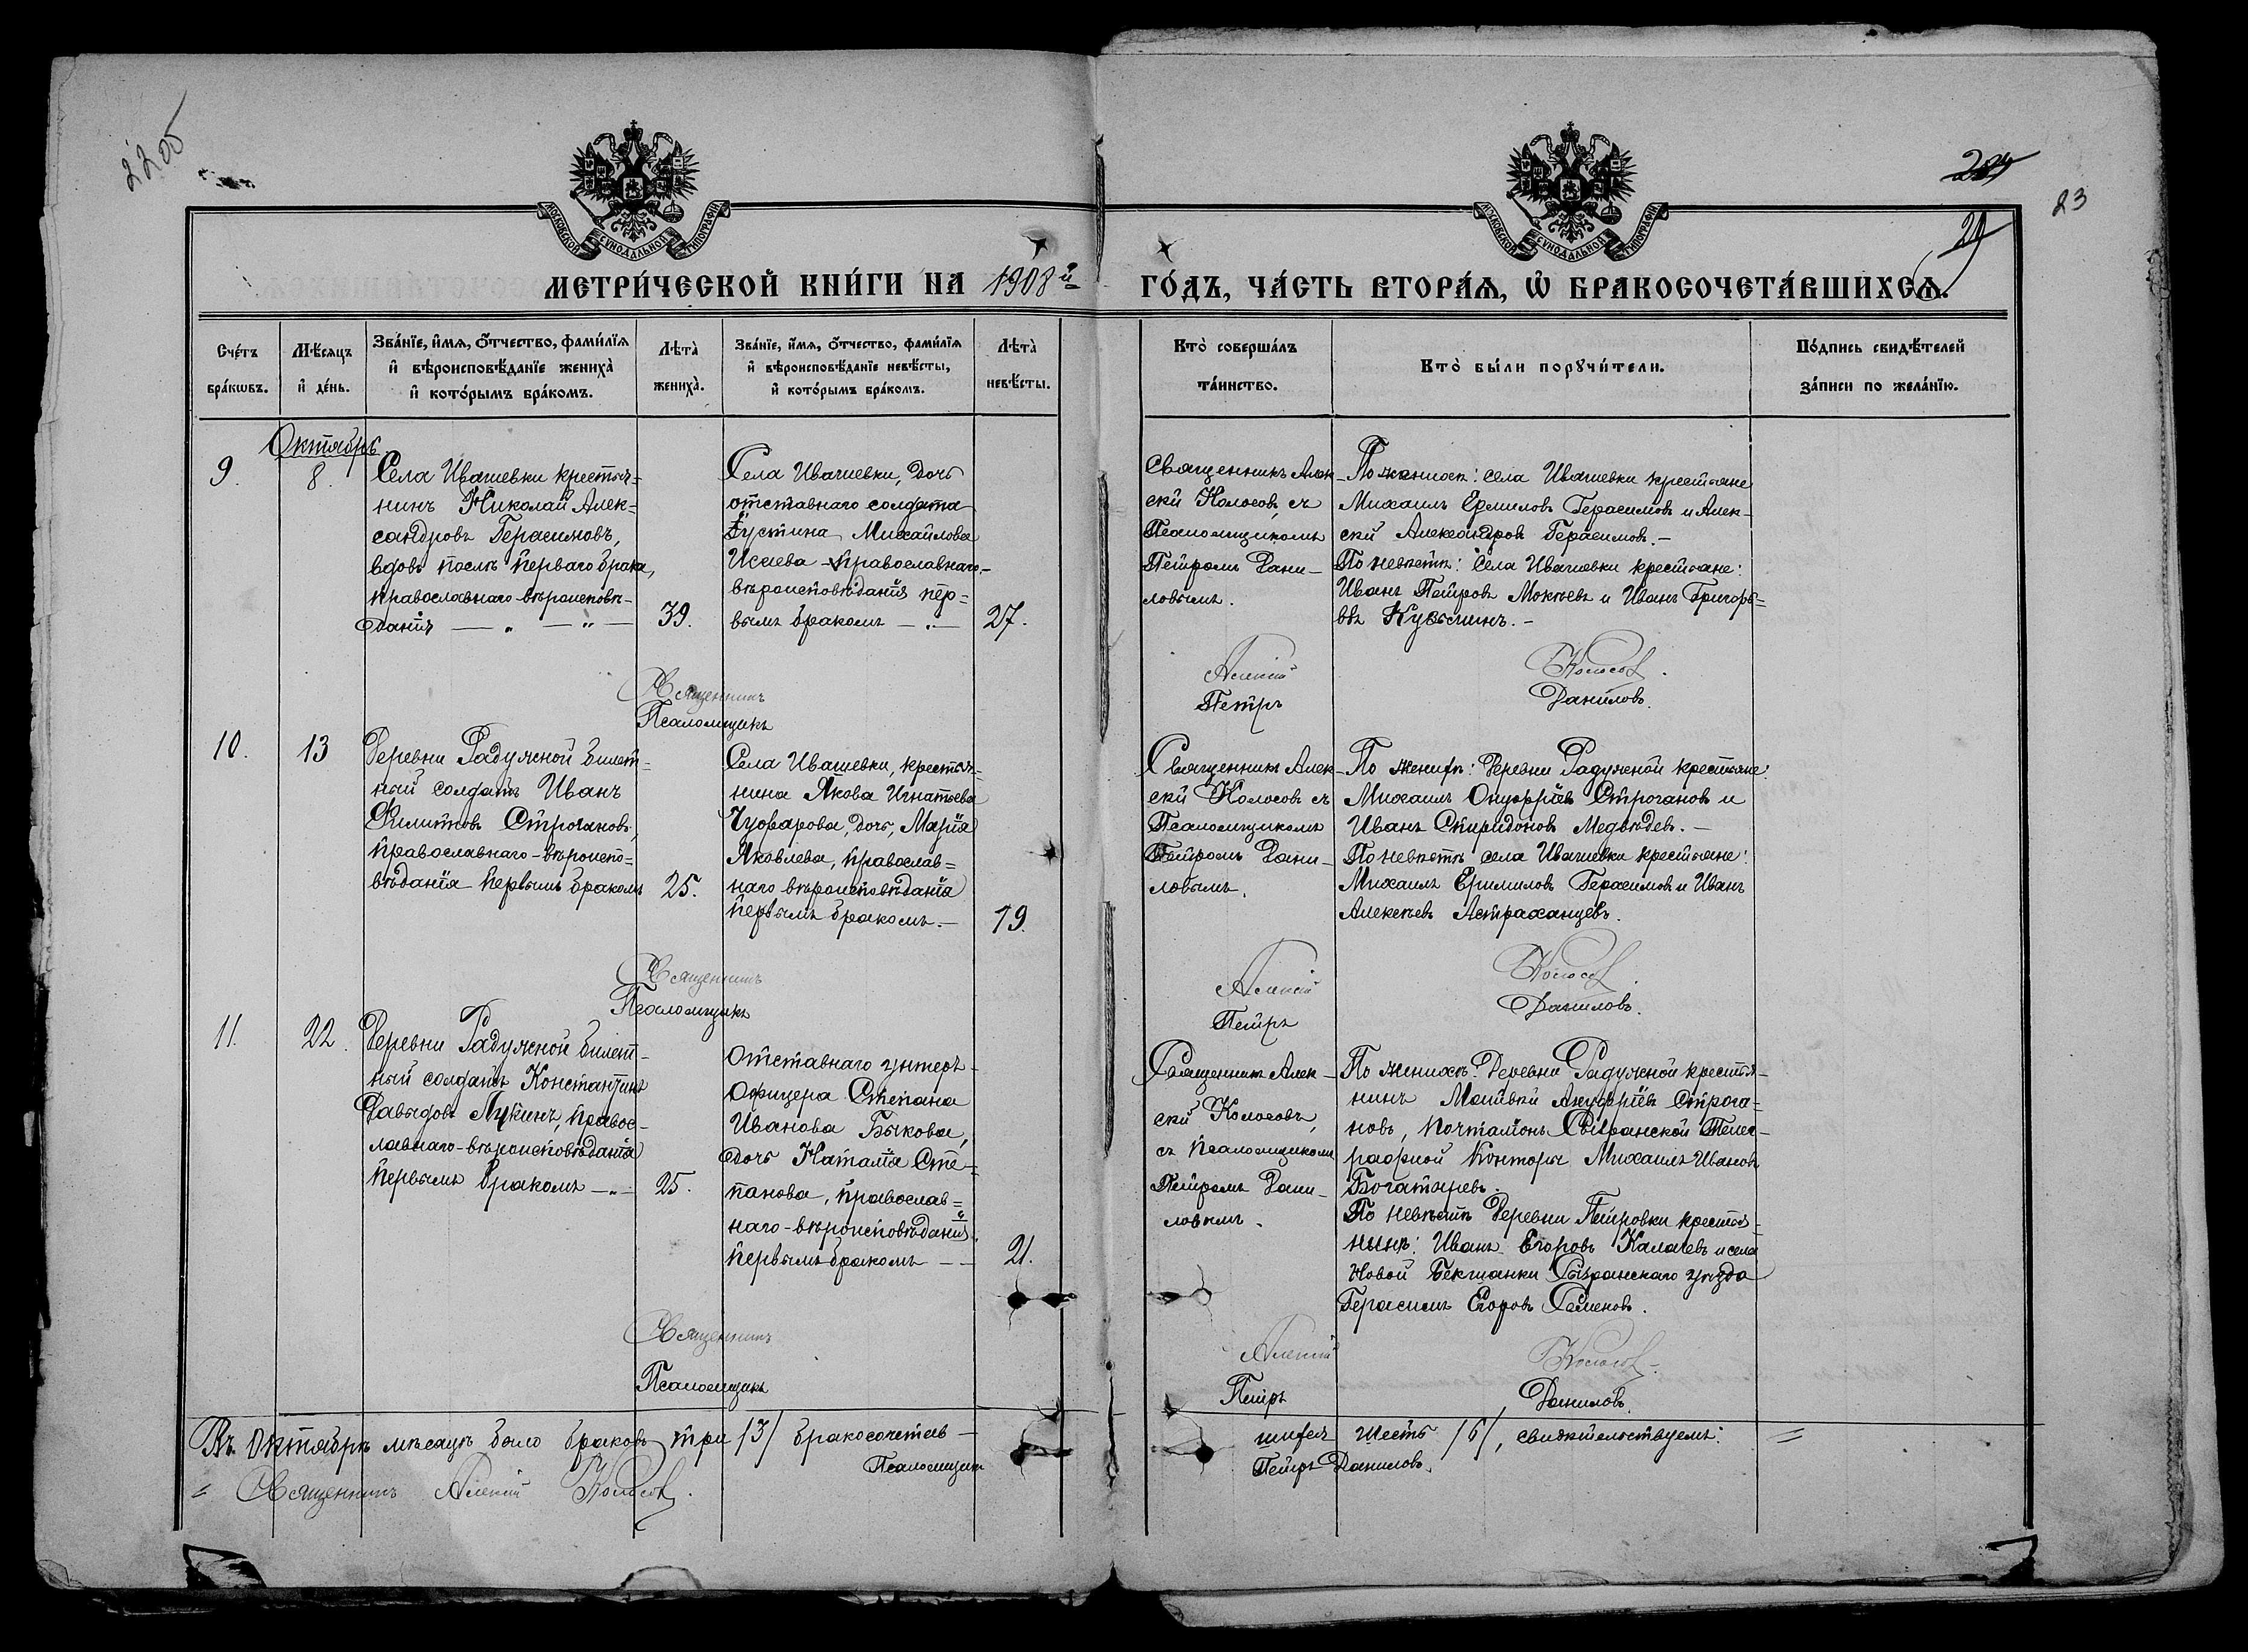 2205
204
29
23
МОСКОВСКОЙ СѴНОДАЛЬНОЙ ТИПОГРАФІИ
МОСКОВСКОЙ СѴНОДАЛЬНОЙ ТИПОГРАФІИ
МЕТРИ́ЧЕСКОЙ КНИ́ГИ НА 1908й ГО́ДЪ, ЧА́СТЬ ВТОРА́Ѧ, Ѽ БРАКОСОЧЕТА́ВШИХСѦ.
Сче́тъ
бра́кѡвъ.
Мѣ́сѧцъ
и҆ де́нь.
Зва́нїе, и҆́мѧ, ѻ҆́тчество, фами́лїѧ
и҆ вѣроисповѣ́данїе жениха̀
и҆ кото́рымъ бра́комъ.
Лѣ́та̀
жениха̀.
Зва́нїе, и҆́мѧ, ѻ҆́тчество, фами́лїѧ
и҆ вѣроисповѣ́данїе невѣ́сты,
и҆ кото́рымъ бра́комъ.
Лѣ́та̀
невѣ́сты.
Кто̀ соверша́лъ
та́инство.
Кто̀ бы́ли порꙋчи́тели.
По́дпись свидѣ́телей
за́писи по жела́нїю.
Октябрь
9.
8.
Села Ивашевки крестья=
нинъ Николай Алек=
сандровъ Герасимовъ,
вдовъ послѣ перваго брака,
православнаго-вѣроисповѣ-
данія — „ — „ —
39.
Села Ивашевки, дочь
отставнаго солдата
Іустина Михайлова
Исаева - православнаго-
вѣроисповѣданія пер=
вымъ бракомъ — „ —
27.
Священникъ Алек-
сѣй Колосовъ, съ
Псаломщикомъ
Петромъ Дани-
ловымъ.
По женихѣ: села Ивашевки крестьяне
Михаилъ Ермиловъ Герасимовъ и Алек-
сѣй Александровъ Герасимовъ. —
По невѣстѣ: села Ивашевки крестьяне:
Иванъ Петровъ Мокѣевъ и Иванъ Григорь=
евъ —
Священникъ Алексій Колосовъ.
Псаломщикъ Петръ Даниловъ.
10.
13
Деревни Радужной билет=
ный солдатъ Иванъ
Филиповъ Строгановъ,
православнаго-вѣроиспо=
вѣданія первымъ бракомъ
25.
Села Ивашевки, крестья=
нина Якова Игнатьева
Чуфарова, дочь, Марія
Яковлева, православ=
наго вѣроисповѣданія
первымъ бракомъ. —
19.
Священникъ Алек-
сѣй Колосовъ съ
Псаломщикомъ
Петромъ Дани-
ловымъ.
По женихѣ: деревни Радужной крестьяне:
Михаилъ Онуфріевъ Строгановъ и
Иванъ Спиридоновъ Медвѣдевъ. —
По невѣстѣ села Ивашевки крестьяне:
Михаилъ Ермиловъ Герасимовъ и Иванъ
Алексѣевъ Астраханцевъ.
Священникъ Алексій Колосовъ.
Псаломщикъ Петръ Даниловъ.
11.
22.
Деревни Радужной билет-
ный солдатъ Константинъ
Давыдовъ Лукинъ, правос-
лавнаго-вѣроисповѣданія
первымъ бракомъ — „ —
25.
Отставнаго унтеръ-
офицера Степана
Иванова Быкова,
дочь Наталія Сте=
панова, православ=
наго-вѣроисповѣданія.
первымъ бракомъ — —
21.
Священникъ Алек-
сѣй Колосовъ,
съ псаломщикомъ
Петромъ Дани-
ловымъ.
По женихѣ. деревни Радужной крестья-
нинъ Строга=
новъ, почталіонъ Сызранской Телег-
рафной Конторы Михаилъ Ивановъ
Богатыревъ.
По невѣстѣ деревни Петровки крестья-
нинъ: Иванъ Егоровъ Калачевъ и села
Новой Бекшанки Сызранскаго уѣзда
Герасимъ Егоровъ Семеновъ.
Священникъ Алексій Колосовъ.
Псаломщикъ Петръ Даниловъ.
Въ Октябрѣ мѣсяцѣ было браковъ три /3/ бракосочетав-шихся шесть /6/, свидѣтельствуемъ: =
= Священникъ Алексій Колосовъ. Псаломщикъ Петръ Даниловъ.